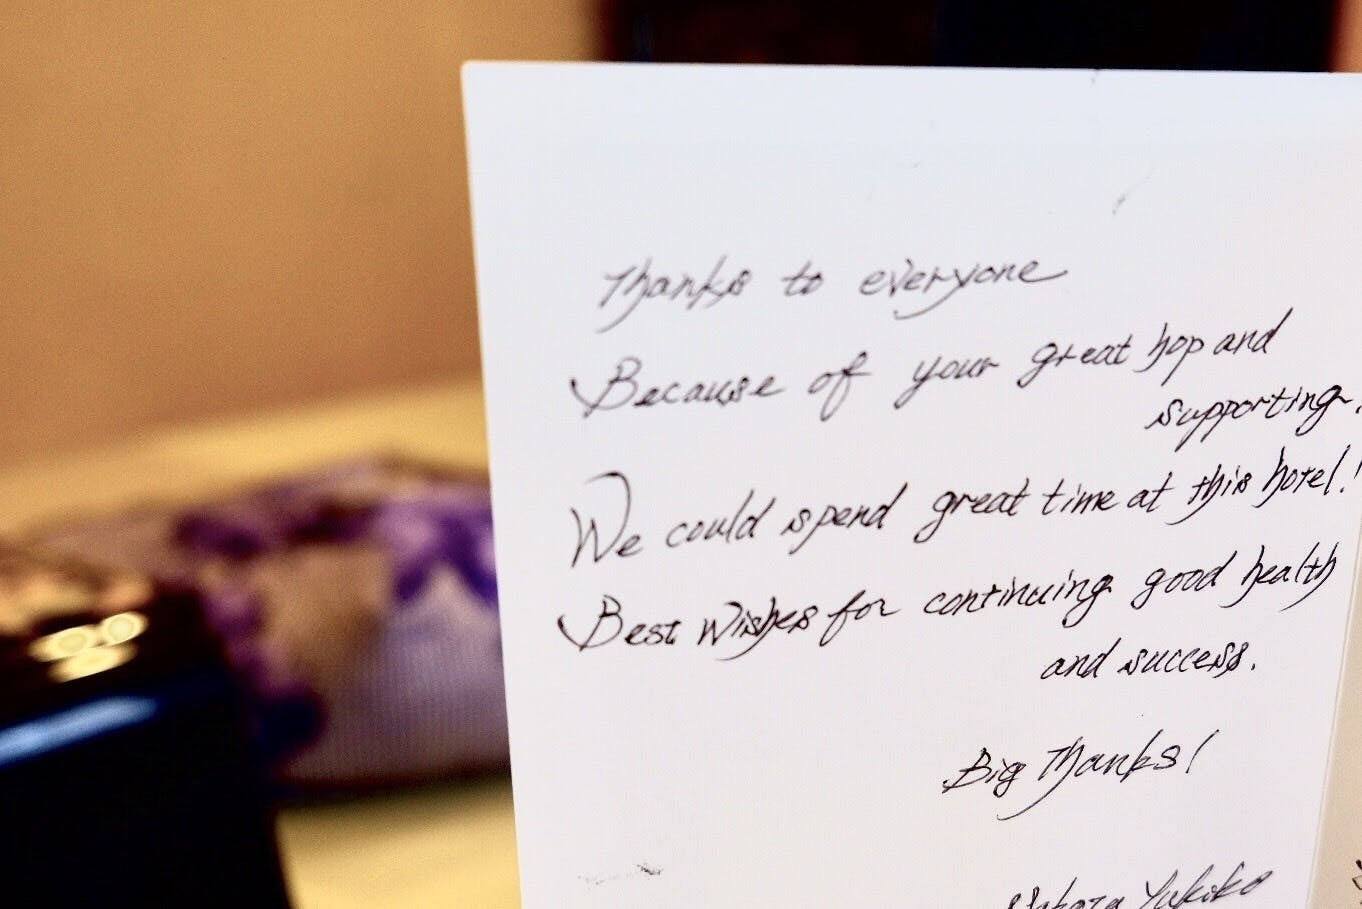 Thanks to everyone
Because of your great hop and
supporting.
We could spend great time at this hotel!
Best Wishes for continuing good health
and success.
Big Thanks!
Yukiko